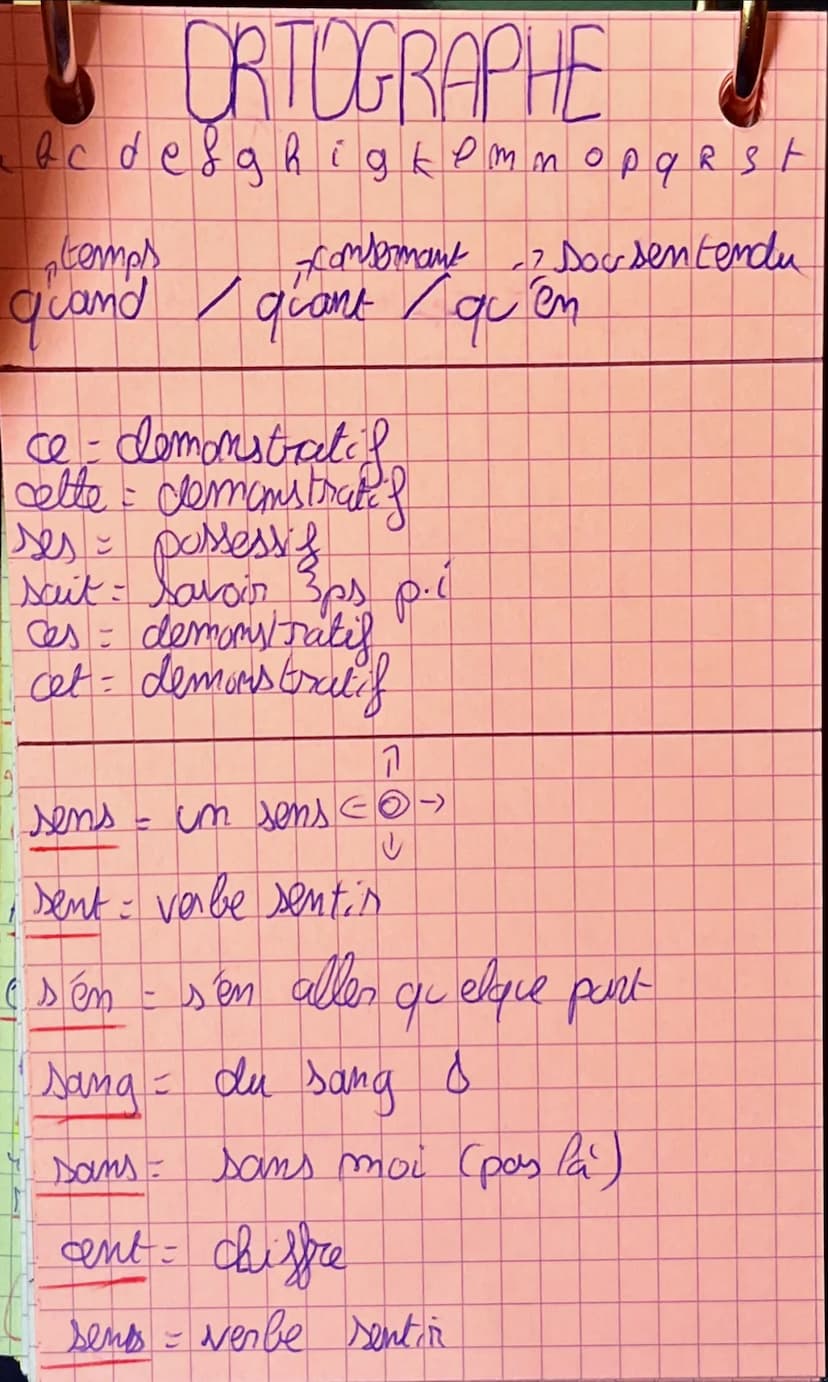 ORTOGRAPHE
b c d e f g h i j k l m n o p q R s t
temps consernant -> sousentendu
quand / quant / qu'en
ce = demonstratif
cette = demonstratif
ses = possessif
sait = savoir 3ps p.i
ces = demonstratif
cet = demonstratif
sens = un sens
sent = verbe sentir
s'en = s'en aller quelque part
sang = du sang
sans = sans moi (pas là)
cent = chiffre
sens = verbe sentir